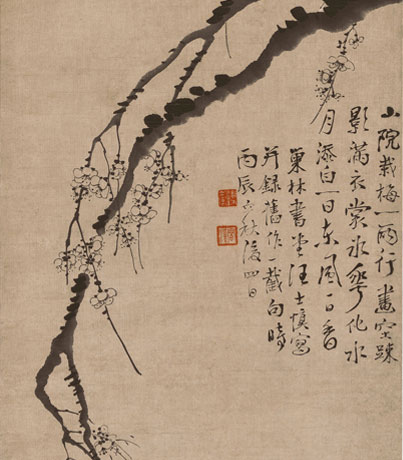 小院栽梅一兩行畫空疎
影滿衣裳冰華化水
月添白一日東風一日香
巢林書堂汪士慎寫
并錄舊作一截句時
丙辰立秋後四日